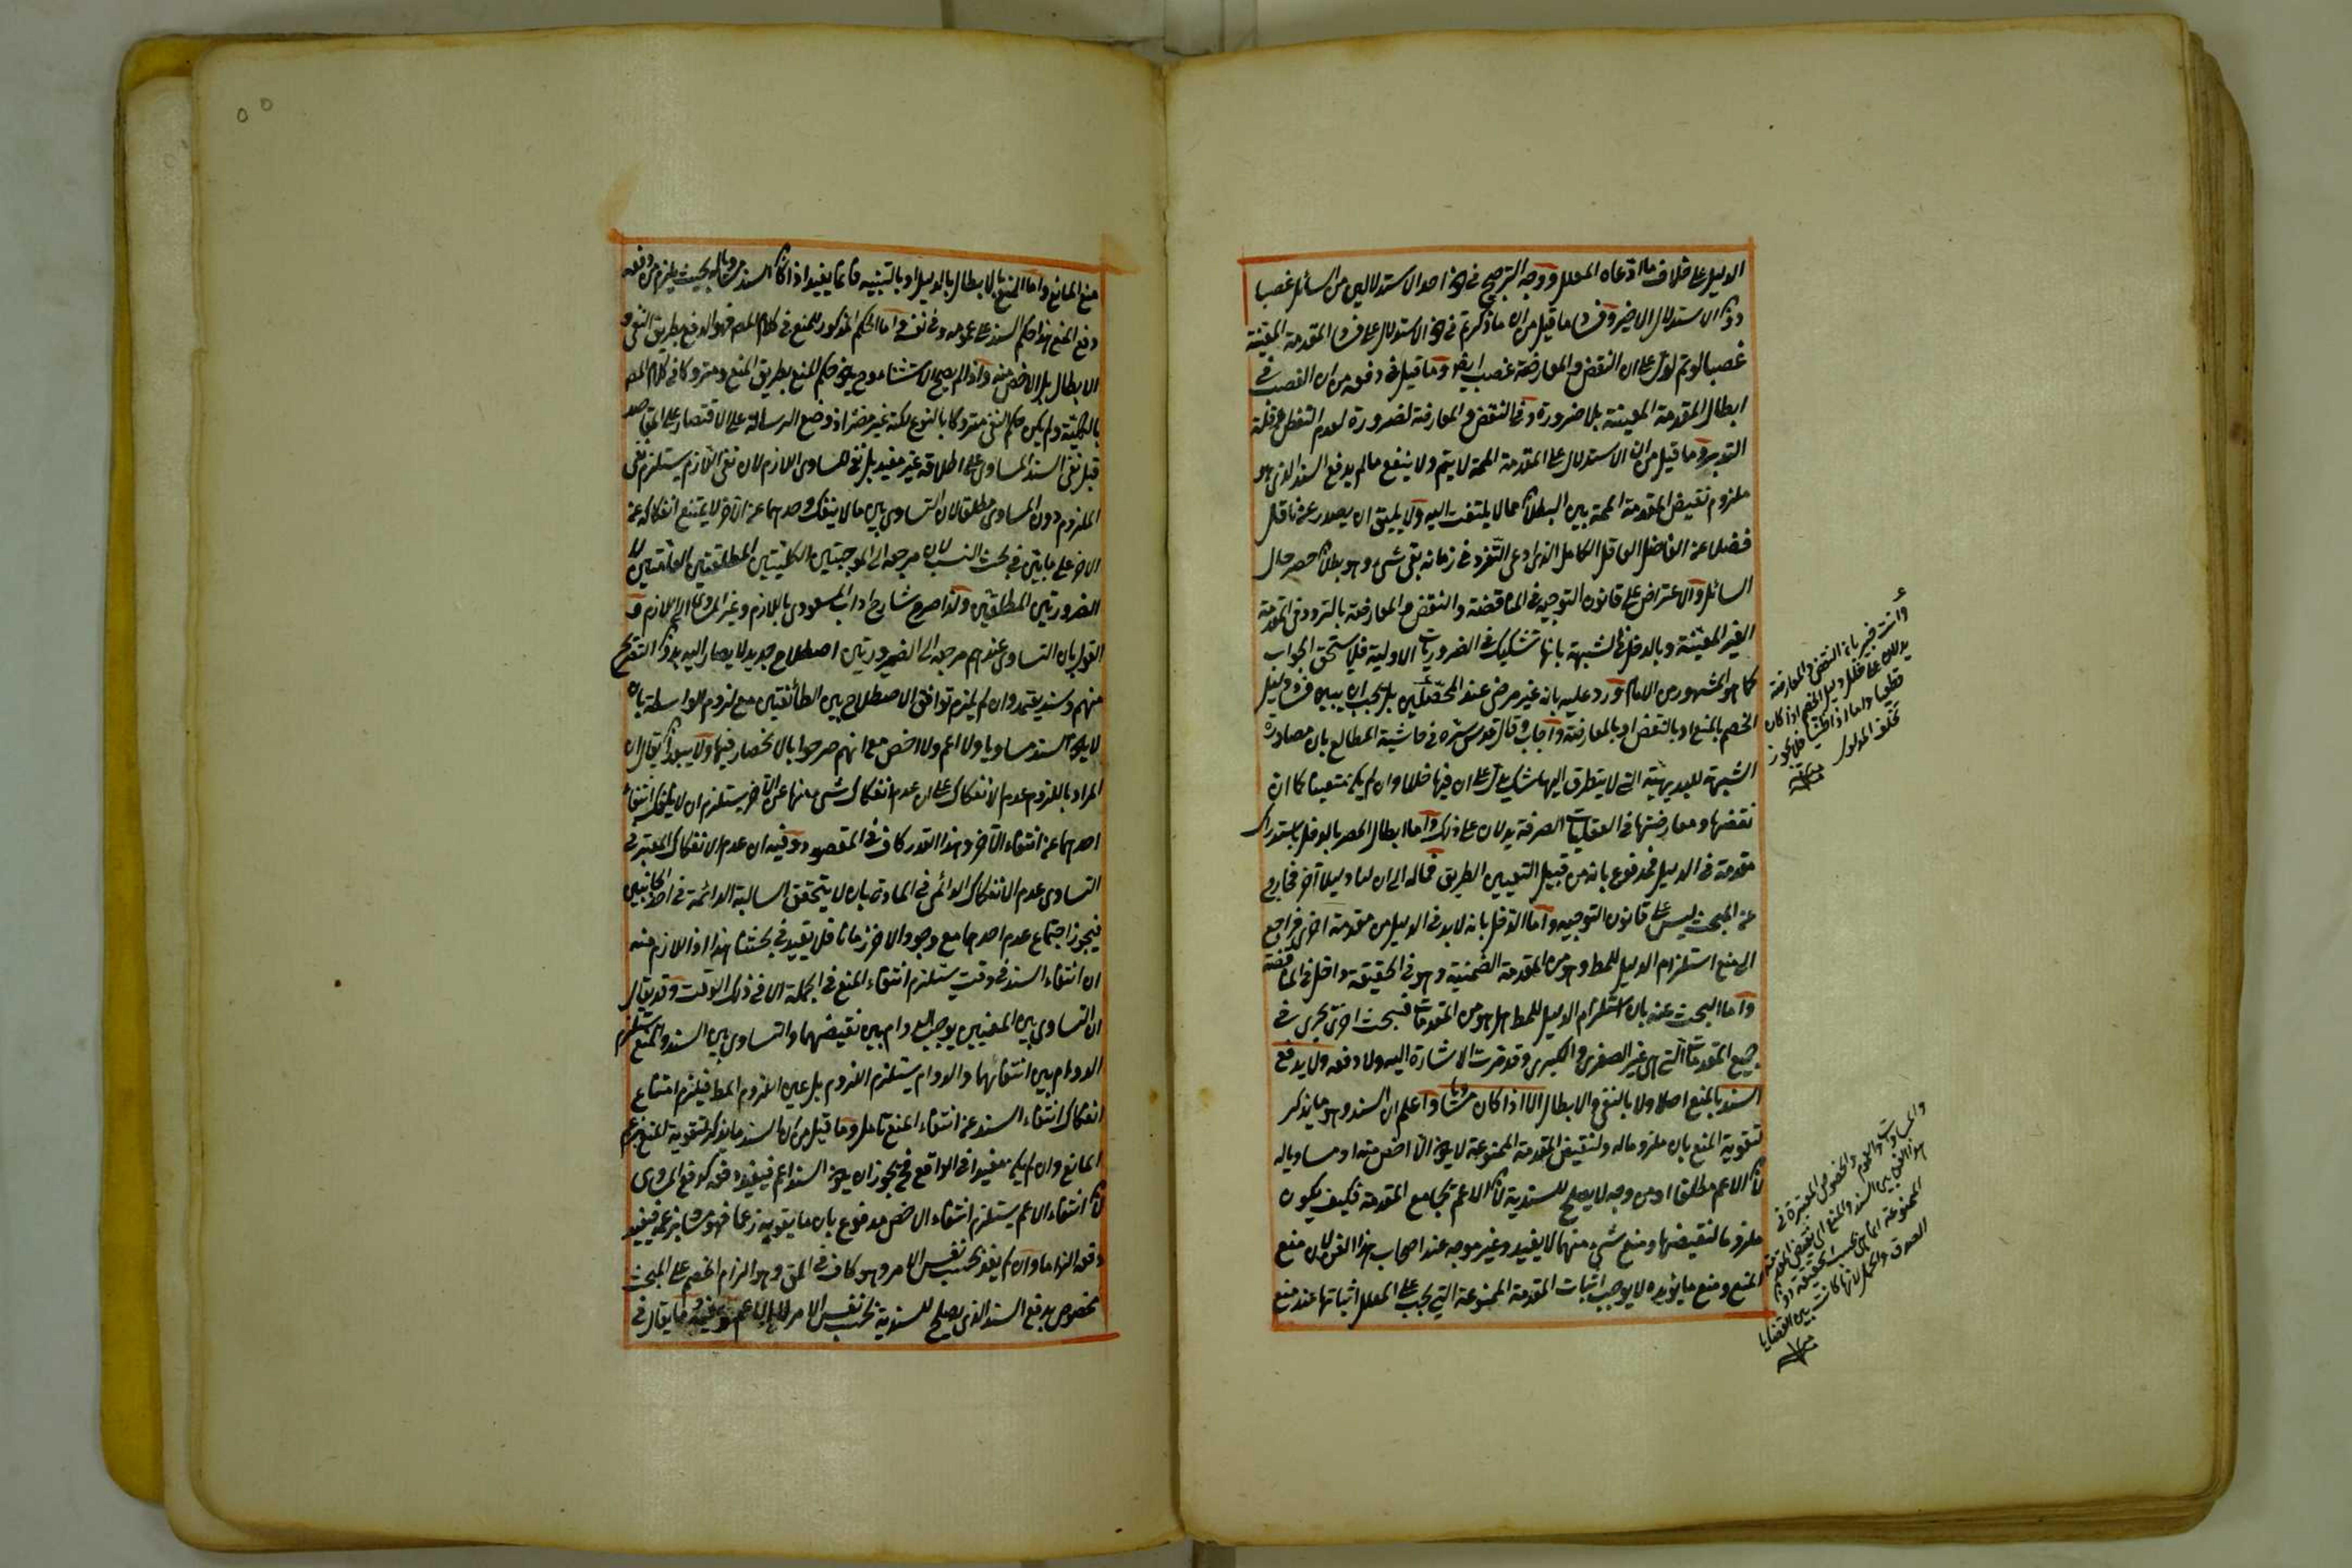 الدليل على خلاف ما ادعاه المعلل ووجه الترجيح في احد الاستدلالين من السائل غصبا
دون الاستدلال الاخير وفساد ما قيل من ان ما ذكرتم في الاستدلال على فساد المقدمة المعينة
غصبا لو تم لدل على ان النقض والمعارضة غصب ايضا وما قيل في دفعه من ان الغصب في
ابطال المقدمة المعينة بلا ضرورة وفي النقض والمعارضة لضرورة لعدم التفطن وقلة
التدبر وما قيل من ان الاستدلال على المقدمة المم لا يتم ولا ينفع ما لم يدفع السند الذي هو
ملزوم نقيض المقدمة المم بين البطلان مما لا يلتفت اليه ولا يليق ان يصدر عن عاقل
فضلا عن الفاضل العاقل الكامل الذي ادعى التفرد في زمانه بقي شيء وهو بطلان حصر حال
السائل والاعتراض على قانون التوجيه في المناقضة والنقض والمعارضة بالتردد في المقدمة
الغير المعينة وبالدخل في الشبهة بانها تشكيك في الضروريات الاولية فلا يستحق الجواب
كما هو المشهور من الامام ورد عليه بانه غير مرضي عند المحصلين بل يجب ان يبين فساد دليل
الخصم بالمنع او بالنقض او بالمعارضة واجاب وقال قدس سره في حاشية المطالع بان مصادرة
الشبهة للبديهية التي لا يتطرق اليها شك يدل على ان فيها خللا وان لم يكن متعينا كما ان
نقضها ومعارضتها في العقليات الصرفة يدلان على ذلك واما ابطال الحصر بالدخل باستدراك
مقدمة في الدليل فمدفوع بانه من قبيل التعيين الطريق فماله الى ان لنا دليلا آخر فخارج
عن المبحث ليس على قانون التوجيه واما الدخل بانه لا بد في الدليل من مقدمة اخرى فراجع
الى منع استلزام الدليل للمط وهو من المقدمة الضمنية وهو في الحقيقة داخل في المناقضة
واما البحث عنه بان استلزام الدليل للمط هل هو من المقدمات فبحث اخر يجري في
جميع المقدمات التي هي غير الصغرى والكبرى وقد مرت الاشارة اليه ولا دفعه ولا يدفع
السند بالمنع اصلا ولا بالنفي والابطال الا اذا كان مساويا واعلم ان السند وهو ما يذكر
لتقوية المنع بان ملزوما له ولنقيض المقدمة الممنوعة لا يكون الا اخص منه او مساويا له
لان الاعم مطلقا او من وجه لا يصلح للسندية لان الاعم يجامع المقدمة فكيف يكون
ملزوما لنقيضها ومنع شيء منهما لا يفيد وغير موجه عند اصحاب هذا الفن لان منع
المنع ومنع ما يؤيده لا يوجب اثبات المقدمة الممنوعة التي يجب على المعلل اثباتها عند منع
وانت خبير بان النقض والمعارضة
يدلان على خلل دليل الخصم اذا كان
قطعيا واما اذا ظنيا فلا يجوز
تخلف المدلول
منه
والمساوات والعموم والخصوص المعتبرة في
هذا الفن بين السند والمنع اي نقيض المقدمة
الممنوعة انما هي بحسب التحقق دون
الصدق والحمل لانها كانت بين القضايا
منه
منع المانع واما المنع بالابطال بالدليل او بالتنبيه فانما يفيد اذا كان السند مساويا له بحيث يلزم من دفعه
دفع المنع هذا حكم السند على عمومه وفي نفسه واما الحكم المذكور للمنع في كلام المص فهو الدفع بطريق النفي و
الابطال بل الاخص منه واذا لم يصح الاستثناء وح يكون حكم المنع بطريق المنع ومتروكا في كلام المص
بالكلية ولم يكن حكم النفي متروكا بالنوع لكنه غير مضر اذ وضع الرسالة على الاقتصار على المقاصد
قيل نفي السند المساوي على اطلاقه غير مفيد بل نفي المساوي اللازم لان نفي اللازم يستلزم نفي
الملزوم دون المساوي مطلقا لان التساوي بين ما لا ينفك احدهما عن الآخر لا يمتنع انفكاكه عن
الاخر على ما بين في بحث النسب لان مرجعه الى الموجبتين الكليتين المطلقتين العامتين لا
الضروريتين المطلقتين ولذا صرح شارح اداب المسعودي باللازم وغير المساوي الى اللازم و
القول بان التساوي عندهم مرجعه الى الضروريتين اصطلاح جديد لا يصار اليه بدون التصريح
منهم وسند يعتمد وان لم يلزم توافق الاصطلاح بين الطائفتين مع لزوم الواسطة بان
لا يكون السند مساويا ولا اعم ولا اخص مع انهم صرحوا بالانحصار فيها ولا يبعد ان يقال ان
المراد باللزوم عدم الانفكاك على ان عدم انفكاك شيء منها عن الآخر يستلزم ان لا ينفك انتفاء
احدهما عن انتفاء الآخر وهذا القدر كاف في المقصود وفيه ان عدم الانفكاك المعتبر في
التساوي عدم الانفكاك الدائمي في المادة بان لا يتحقق السالبة الدائمة في احد الجانبين
فيجوز اجتماع عدم احدهما مع وجود الاخر زمانا فلا يفيد في بحثنا هذا اذ اللازم منه
ان انتفاء السند في وقت يستلزم انتفاء المنع في الجملة لا في ذلك الوقت وقد يقال
ان التساوي بين المعنيين يوجب الدوام بين نقيضهما والتساوي بين السند والمنع يستلزم
الدوام بين انتفائهما والدوام يستلزم اللزوم بل عين اللزوم المط فيلزم امتناع
انفكاك انتفاء السند عن انتفاء المنع تأمل وما قيل من ان السند ما يذكر لتقوية المنع بزعم
المانع وان لم يكن مفيدا في الواقع فح يجوز ان يكون السند اعم فيفيد دفعه كدفع المساوي
لان انتفاء الاعم يستلزم انتفاء الاخص مدفوع بان ما يقويه زعما فهو مساو بزعمه فيفيد
دفعه الزاما وان لم يفد بحسب نفس الامر وهو كاف في المق وهو الزام الخصم على المبحث
مخصوص بدفع السند الذي يصلح للسندية بحسب نفس الامر وما يقال في